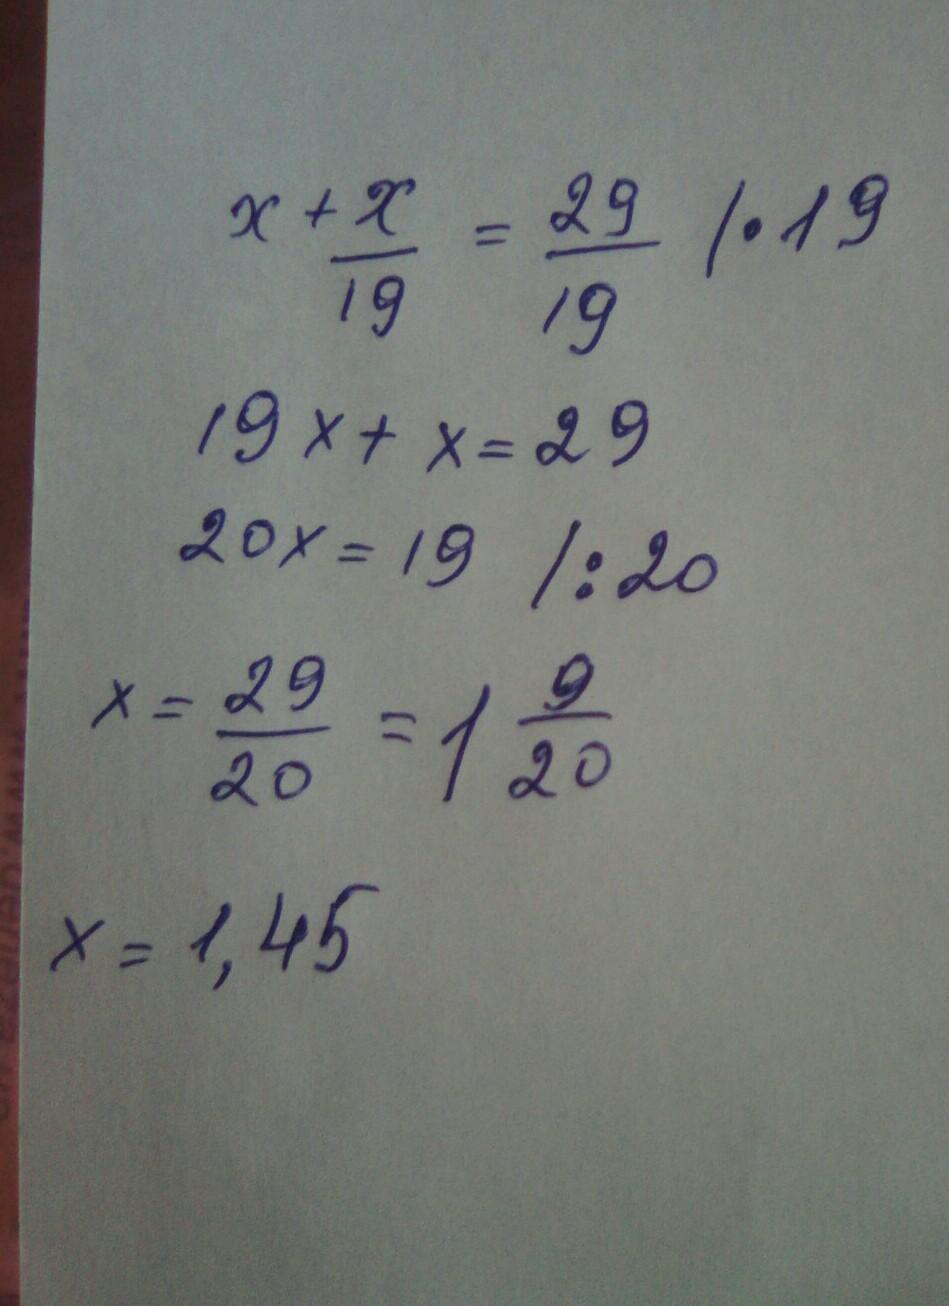 x + x/19 = 29/19 /·19
19x + x = 29
20x = 19 /:20
x = 29/20 = 1 9/20
x = 1,45